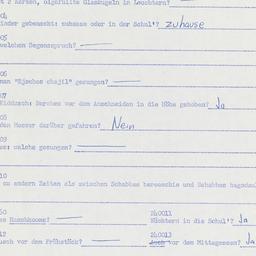 t 2 Kerzen, ölgefüllte Glaskugeln in Leuchtern?
04
Kinder gebenscht: zuhause oder in der Schul'? zuhause
05
welchem Segensspruch?
06
man "Ejsches chajil" gesungen?
07
Kiddusch: Barches vor dem Anschneiden in die Höhe gehoben? Ja
08
dem Messer darüber gefahren? Nein
09
welche gesungen?
10
zu andern Zeiten als zwischen Schabbes bereeschis und Schabbes hagodol
240011
Nüchtern in die Schul'? Ja
12 240013
usch vor dem Frühstück? Auch vor dem Mittagessen? Ja